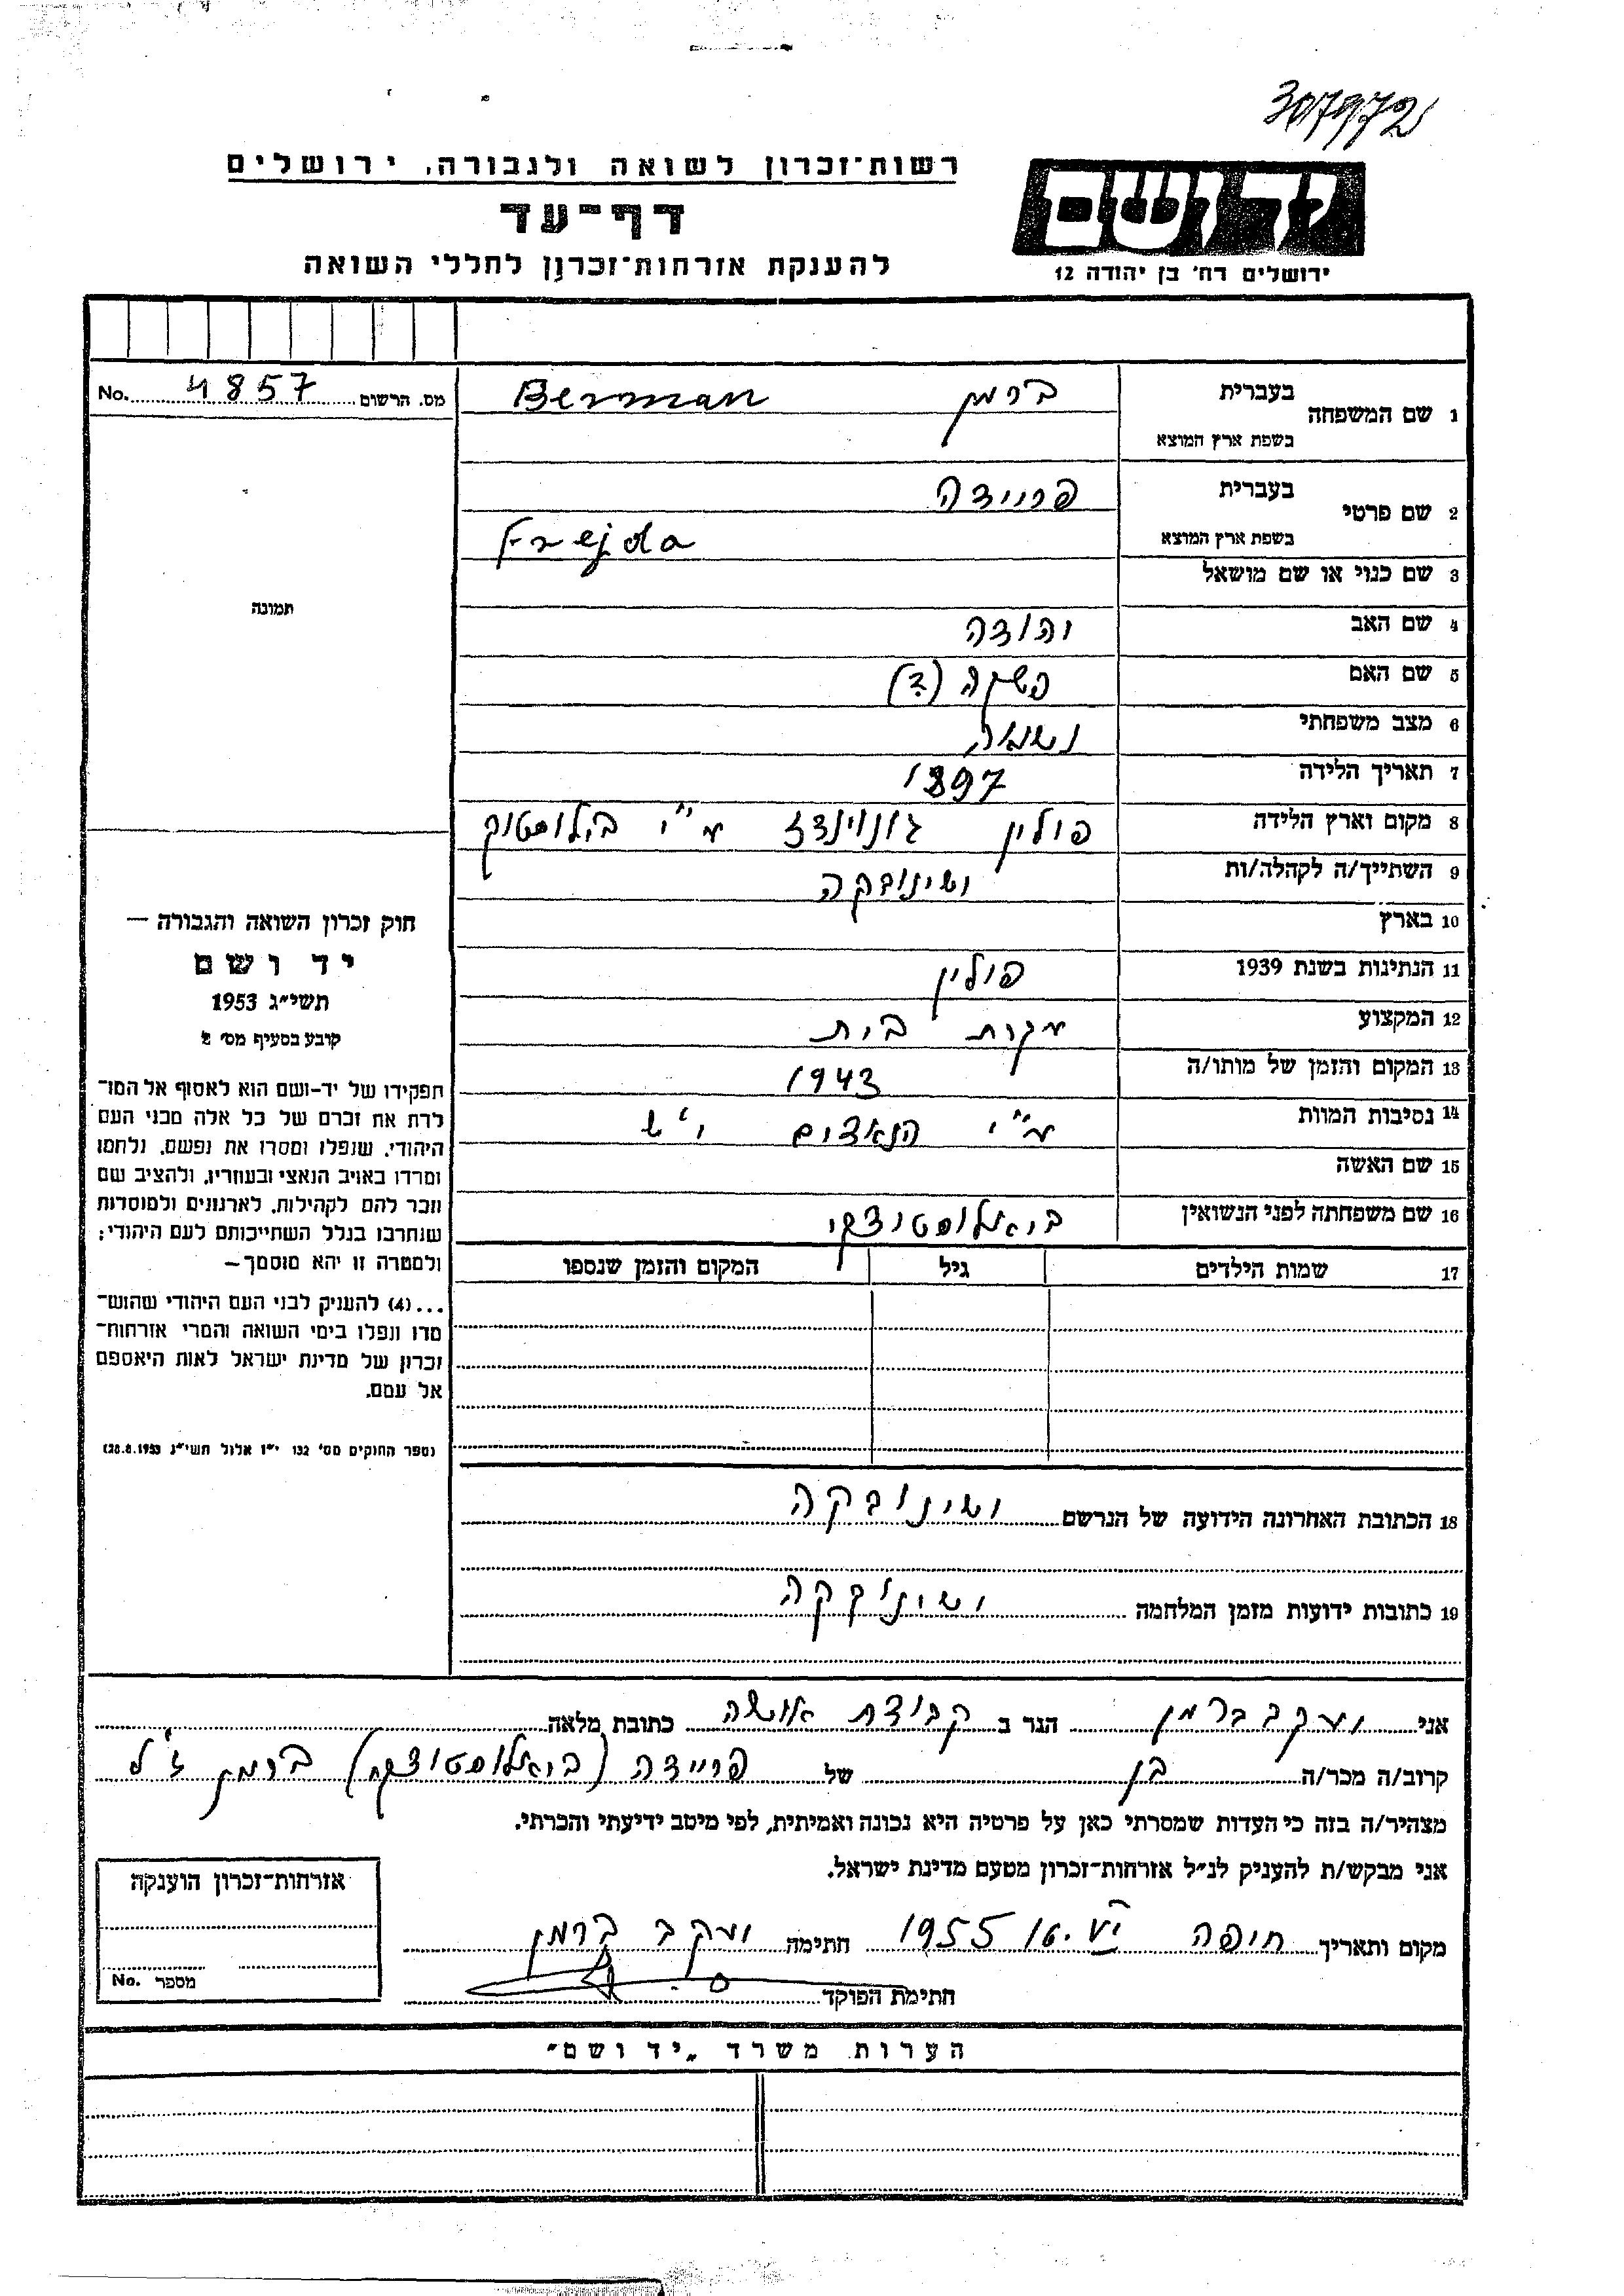 307972
רשות־זכרון לשואה ולגבורה, ירושלים
ידושם
דף־עד
להענקת אזרחות־זכרון לחללי השואה
ירושלים רח׳ בן יהודה 12
מס. הרשום 4857 No.
1 שם המשפחה בעברית ברמן Berman
בשפת ארץ המוצא
2 שם פרטי בעברית פריידה
בשפת ארץ המוצא Frejda
3 שם כנוי או שם מושאל
תמונה
4 שם האב יהודה
5 שם האם
6 מצב משפחתי נשואה
7 תאריך הלידה 1897
8 מקום וארץ הלידה פולין גונוינדז ע״י ביאלוסטוק
9 השתייך/ה לקהלה/ות ושינובקה
10 בארץ
11 הנתינות בשנת 1939 פולין
12 המקצוע עקרת בית
13 המקום והזמן של מותו/ה 1943
14 נסיבות המוות ע״י הנאצים י״ש
15 שם האשה
16 שם משפחתה לפני הנשואין ביאלוסטוצקי
17 שמות הילדים גיל המקום והזמן שנספו
חוק זכרון השואה והגבורה —
יד ושם
תשי״ג 1953
קובע בסעיף מס׳ 2
תפקידו של יד-ושם הוא לאסוף אל המו־
לדת את זכרם של כל אלה מבני העם
היהודי, שנפלו ומסרו את נפשם, נלחמו
ומרדו באויב הנאצי ובעוזריו, ולהציב שם
וזכר להם לקהילות, לארגונים ולמוסדות
שנחרבו בגלל השתייכותם לעם היהודי;
ולמטרה זו יהא מוסמך—
...(4) להעניק לבני העם היהודי שהוש־
מדו ונפלו בימי השואה והמרי אזרחות־
זכרון של מדינת ישראל לאות היאספם
אל עמם.
(ספר החוקים מס׳ 132 י״ז אלול תשי״ג 28.8.1953)
18 הכתובת האחרונה הידועה של הנרשם ושינובקה
19 כתובות ידועות מזמן המלחמה ושינובקה
אני יעקב ברמן הגר ב קבוצת אושה כתובת מלאה
קרוב/ה מכר/ה בן של פריידה (ביאלוסטוצקי) ברמן ז״ל
מצהיר/ה בזה כי העדות שמסרתי כאן על פרטיה היא נכונה ואמיתית, לפי מיטב ידיעתי והכרתי.
אני מבקש/ת להעניק לנ״ל אזרחות־זכרון מטעם מדינת ישראל.
מקום ותאריך חיפה 16.VI 1955 חתימה יעקב ברמן
חתימת הפוקד
אזרחות־זכרון הוענקה
מספר No.
הערות משרד „יד ושם״